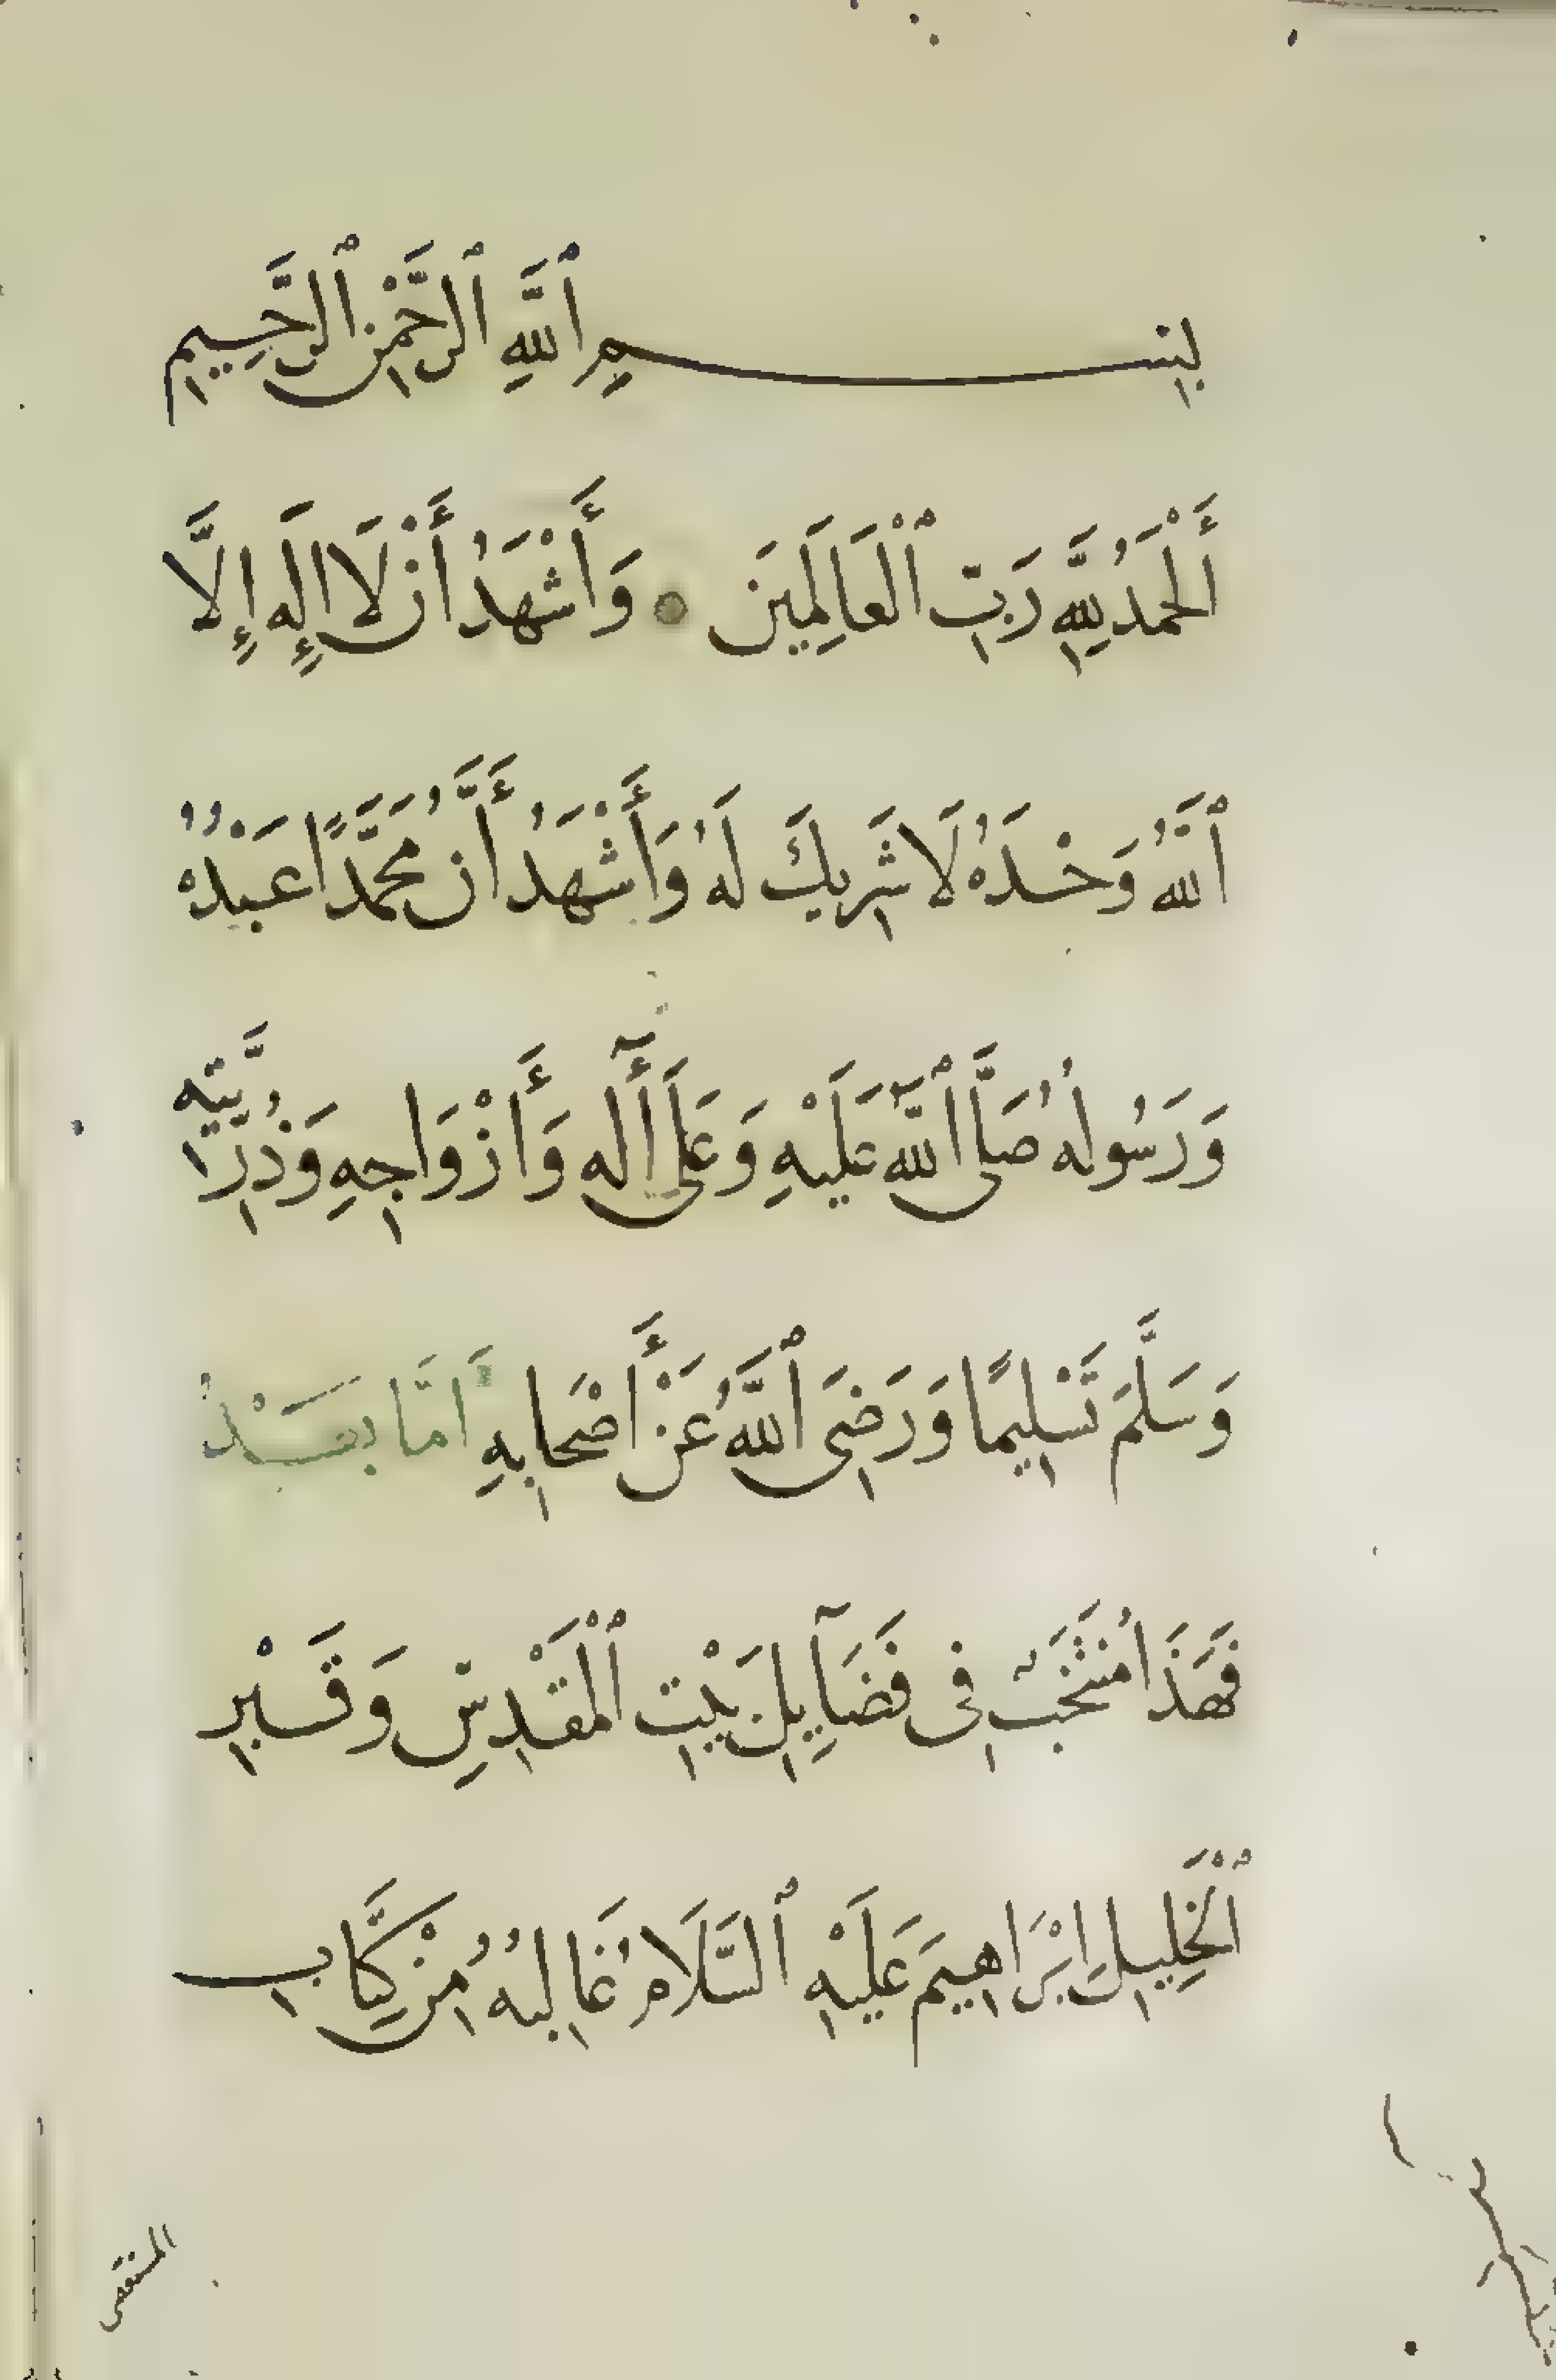 بِسْمِ ٱللَّهِ ٱلرَّحْمَٰنِ ٱلرَّحِيمِ
أَلْحَمْدُ لِلَّهِ رَبِّ ٱلْعَالَمِينَ وَأَشْهَدُ أَنْ لَا إِلَهَ إِلَّا
ٱللَّهُ وَحْدَهُ لَا شَرِيكَ لَهُ وَأَشْهَدُ أَنَّ مُحَمَّدًا عَبْدُهُ
وَرَسُولُهُ صَلَّى ٱللَّهُ عَلَيْهِ وَعَلَى أَلِهِ وَأَزْوَاجِهِ وَذُرِّيَّتِهِ
وَسَلَّمَ تَسْلِيمًا وَرَضِىَ ٱللَّهُ عَنْ أَصْحَابِهِ أَمَّا بَعْدُ
فَهَذَا مُنْتَخَبٌ فِى فَضَآيِلِ بَيْتِ ٱلْمَقْدِسِ وَقَبْرِ
ٱلْخَلِيلِ إِبْرَاهِيمَ عَلَيْهِ ٱلسَّلَامُ غَالِبُهُ مِنْ كِتَابِ
المستقصى